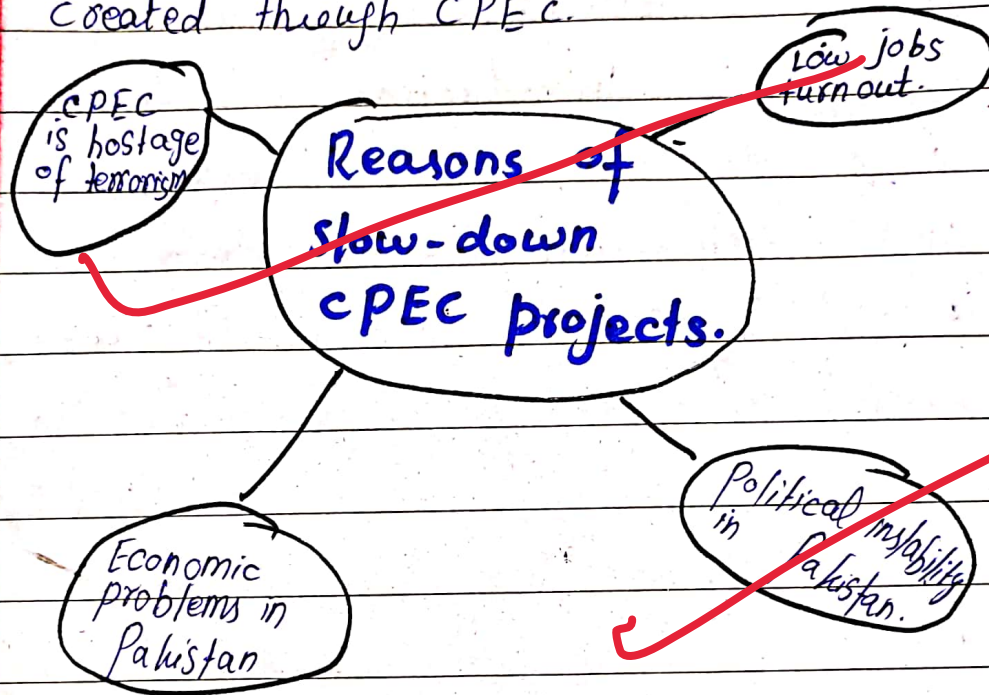 created through CPEC.
CPEC
is hostage
of terrorism
Low jobs
turnout.
Reasons of
slow-down
CPEC projects.
Economic
problems in
Pakistan
Political instability
in Pakistan.